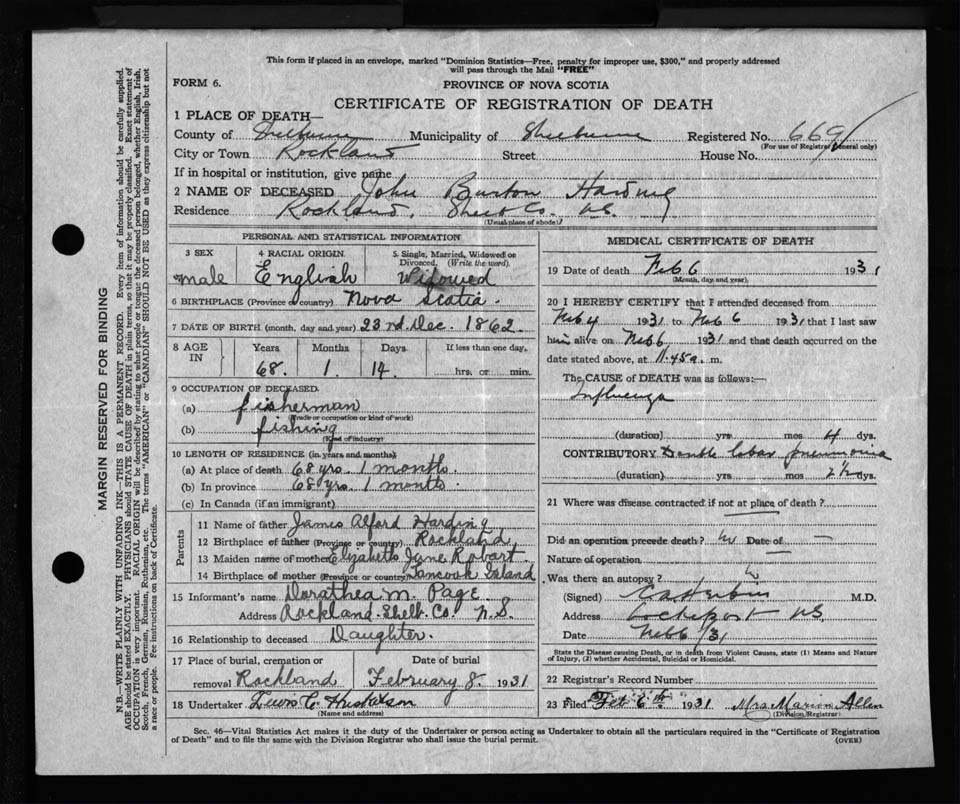 This form if placed in an envelope, marked "Dominion Statistics—Free, penalty for improper use, $300," and properly addressed
will pass through the Mail "FREE"
FORM 6.
PROVINCE OF NOVA SCOTIA
CERTIFICATE OF REGISTRATION OF DEATH
1 PLACE OF DEATH—
County of Shelburne Municipality of Shelburne Registered No. 669
(For use of Registrar General only)
City or Town Rockland Street House No.
If in hospital or institution, give name
2 NAME OF DECEASED John Burton Harding
Residence Rockland, Shel. Co. N.S.
(Usual place of abode)
PERSONAL AND STATISTICAL INFORMATION
3 SEX 4 RACIAL ORIGIN 5 Single, Married, Widowed or
Divorced. (Write the word).
male English Widowed
6 BIRTHPLACE (Province or country) Nova Scotia.
7 DATE OF BIRTH (month, day and year) 23rd. Dec. 1862.
8 AGE IN Years Months Days If less than one day,
68. 1. 14. hrs. or min.
9 OCCUPATION OF DECEASED
(a) fisherman
(Trade or occupation or kind of work)
(b) fishing
(Kind of industry)
10 LENGTH OF RESIDENCE (in years and months)
(a) At place of death 68 yrs. 1 months.
(b) In province 68 yrs. 1 months.
(c) In Canada (if an immigrant)
Parents
11 Name of father James Alford Harding
12 Birthplace of father (Province or country) Rockland
13 Maiden name of mother Elizabeth Jane Robart
14 Birthplace of mother (Province or country) Tancook Island
15 Informant's name Dorathea M. Page
Address Rockland Shelb. Co. N.S.
16 Relationship to deceased Daughter.
17 Place of burial, cremation or Date of burial
removal Rockland February 8 1931
18 Undertaker Lewis C.
(Name and address)
MEDICAL CERTIFICATE OF DEATH
19 Date of death Feb 6 1931
(Month, day and year).
20 I HEREBY CERTIFY that I attended deceased from
Feb 4 1931 to Feb 6 1931 that I last saw
him alive on Feb 6 1931 and that death occurred on the
date stated above, at 11.45 a. m.
The CAUSE of DEATH was as follows:—
Influenza
(duration) yrs mos 4 dys.
CONTRIBUTORY Double lobar pneumonia
(duration) yrs. mos 2½ dys.
21 Where was disease contracted if not at place of death?
Did an operation precede death? no Date of —
Nature of operation
Was there an autopsy? no
(Signed) M.D.
Address Lockeport N.S.
Date Feb 6/31
State the Disease causing Death, or in death from Violent Causes, state (1) Means and Nature
of Injury, (2) whether Accidental, Suicidal or Homicidal.
22 Registrar's Record Number
23 Filed Feb 6th 1931 Mrs. Marion Allen
(Division Registrar)
Sec. 46—Vital Statistics Act makes it the duty of the Undertaker or person acting as Undertaker to obtain all the particulars required in the "Certificate of Registration
of Death" and to file the same with the Division Registrar who shall issue the burial permit. (OVER)
MARGIN RESERVED FOR BINDING
N.B.—WRITE PLAINLY WITH UNFADING INK—THIS IS A PERMANENT RECORD. Every item of information should be carefully supplied.
AGE should be stated EXACTLY. PHYSICIANS should STATE CAUSE OF DEATH in plain terms, so that it may be properly classified. Exact statement of
OCCUPATION is very important. RACIAL ORIGIN will be described by stating to what people or tongue the deceased person belonged, whether English, Irish,
Scotch, French, German, Russian, Ruthenian, etc. The terms "AMERICAN" or "CANADIAN" SHOULD NOT BE USED as they express citizenship but not
a race or people. See instructions on back of Certificate.